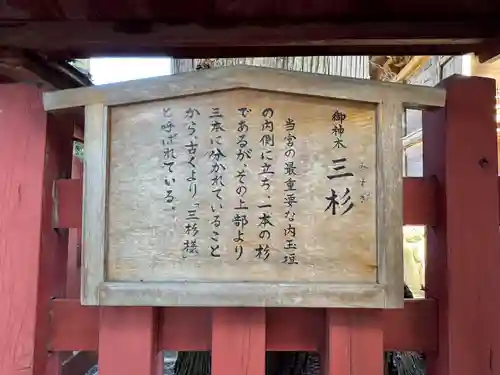 御神木 三杉
みすぎ
当宮の最重要な内玉垣
の内側に立ち、一本の杉
であるが、その上部より
三本に分かれていること
から、古くより「三杉様」
と呼ばれている。